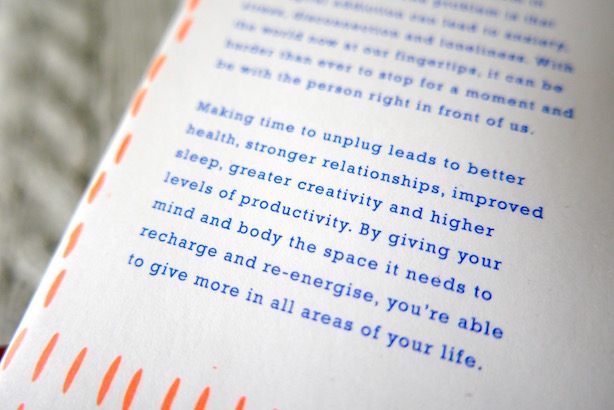 problem is that
addiction can lead to anxiety,
stress, disconnection and loneliness. With
the world now at our fingertips, it can be
harder than ever to stop for a moment and
be with the person right in front of us.
Making time to unplug leads to better
health, stronger relationships, improved
sleep, greater creativity and higher
levels of productivity. By giving your
mind and body the space it needs to
recharge and re-energise, you're able
to give more in all areas of your life.